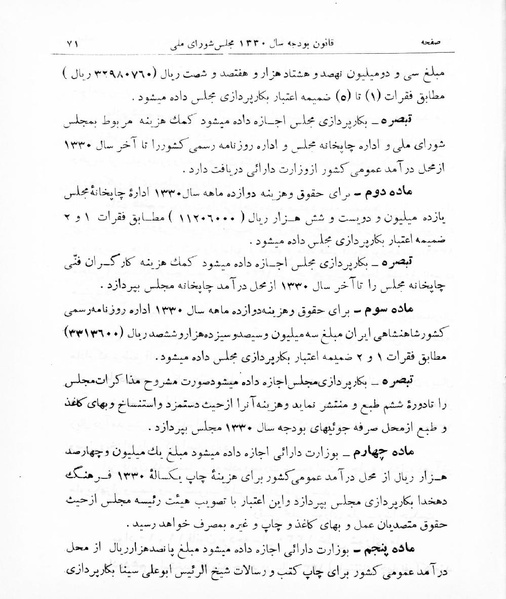 صفحه قانون بودجه سال ۱۳۳۰ مجلس شورای ملی ۷۱
مبلغ سی و دومیلیون نهصد و هشتاد هزار و هفتصد و شصت ریال (۳۲۹۸۰۷۶۰ ریال)
مطابق فقرات (۱) تا (۵) ضمیمه اعتبار بکارپردازی مجلس داده میشود.
تبصره ـ بکارپردازی مجلس اجازه داده میشود کمك هزینه مربوط بمجلس
شورای ملی و اداره چاپخانه مجلس و اداره روزنامه رسمی کشور را تا آخر سال ۱۳۳۰
از محل در آمد عمومی کشور از وزارت دارائی دریافت دارد.
ماده دوم ـ برای حقوق و هزینه دوازده ماهه سال ۱۳۳۰ ادارهٔ چاپخانهٔ مجلس
یازده میلیون و دویست و شش هزار ریال (۱۱۲۰۶۰۰۰) مطابق فقرات ۱ و ۲
ضمیمه اعتبار بکارپردازی مجلس داده میشود.
تبصره ـ بکارپردازی مجلس اجازه داده میشود کمك هزینه کارگران فنی
چاپخانه مجلس را تا آخر سال ۱۳۳۰ از محل در آمد چاپخانه مجلس بپردازد.
ماده سوم ـ برای حقوق و هزینه دوازده ماهه سال ۱۳۳۰ اداره روزنامه رسمی
کشور شاهنشاهی ایران مبلغ سه میلیون و سیصد و سیزده هزار و ششصد ریال (۳۳۱۳۶۰۰)
مطابق فقرات ۱ و ۲ ضمیمه اعتبار بکارپردازی مجلس داده میشود.
تبصره ـ بکارپردازی مجلس اجازه داده میشود صورت مشروح مذاکرات مجلس
را تا دورهٔ ششم طبع و منتشر نماید و هزینه آنرا از حیث دستمزد و استنساخ و بهای کاغذ
و طبع از محل صرفه جوئیهای بودجه سال ۱۳۳۰ مجلس بپردازد.
ماده چهارم ـ بوزارت دارائی اجازه داده میشود مبلغ یك میلیون و چهارصد
هزار ریال از محل در آمد عمومی کشور برای هزینهٔ چاپ یکسالهٔ ۱۳۳۰ فرهنگ
دهخدا بکارپردازی مجلس بپردازد و این اعتبار با تصویب هیئت رئیسه مجلس از حیث
حقوق متصدیان عمل و بهای کاغذ و چاپ و غیره بمصرف خواهد رسید.
ماده پنجم ـ بوزارت دارائی اجازه داده میشود مبلغ پانصد هزار ریال از محل
درآمد عمومی کشور برای چاپ کتب و رسالات شیخ الرئیس ابوعلی سینا بکارپردازی